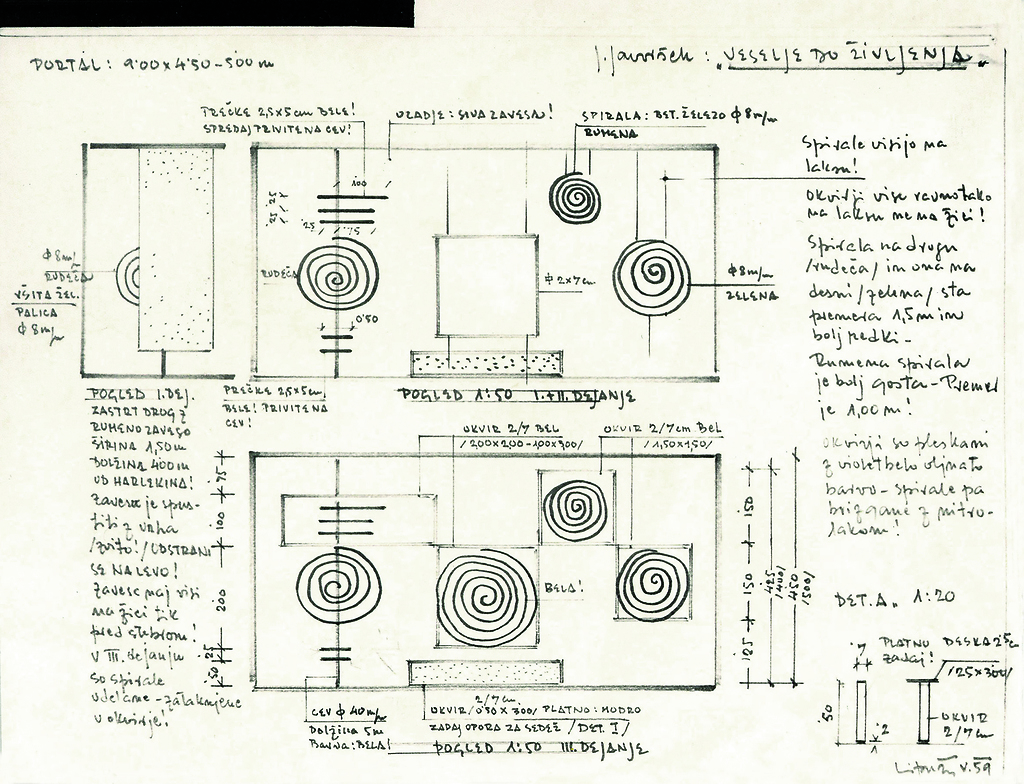 PORTAL: 9'00 x 4'50 - 500 m
J. Javoršek: „VESELJE DO ŽIVLJENJA„
PREČKE 2,5x5cm BELE!
SPREDAJ PRIVITENA CEV!
OZADJE: SIVA ZAVESA!
SPIRALA: BET. ŽELEZO φ 8m/m
RUMENA
Spirale visijo na
laksu!
Okvirji vise ravnotako
na laksu ne na žici!
Spirala na drogu
/rudeča/ in ona na
desni /zelena/ sta
premera 1,5m in
bolj redki -
Rumena spirala
je bolj gosta - Premer
je 1,00 m!
Okvirji so pleskani
z violetbelo oljnato
barvo - spirale pa
brizgane z nitro-
lakom!
100
25
25
25
75
φ 8m/m
RUDEČA
VŠITA ŽEL.
PALICA
φ 8m/m
RUDEČA
φ 2x7c
φ 8m/m
ZELENA
0'50
POGLED I. DEJ.
ZASTRT DROG Z
RUMENO ZAVESO
ŠIRINA 1,50m
DOLŽINA 400m
OD HARLEKINA!
Zavesa je spus-
titi z vrha
/zvito!/ ODSTRANI
SE NA LEVO!
Zavesa naj visi
na žici tik
pred stebrom!
V III. dejanju
so spirale
v okvirje!
PREČKE 2,5x5cm
BELE! PRIVITE NA
CEV!
POGLED 1:50 I.+II. DEJANJE
OKVIR 2/7 BEL
/200x200-100x300/
OKVIR 2/7cm BEL
/1,50x1,50/
75
100
200
25
50
BELA!
150
150
125
425
/400/
450
/500/
DET. A„ 1:20
PLATNO
zadaj!
DESKA 2,5c
/25x300/
50
2
OKVIR
2/7c
CEV φ 40m/m
Dolžina 5m
Barva: BELA!
2/7c
OKVIR /0'50 x 300/ PLATNO: MODRO
ZADAJ OPORA ZA SEDEŽ /DET. I/
POGLED 1:50 III. DEJANJE
V. 59